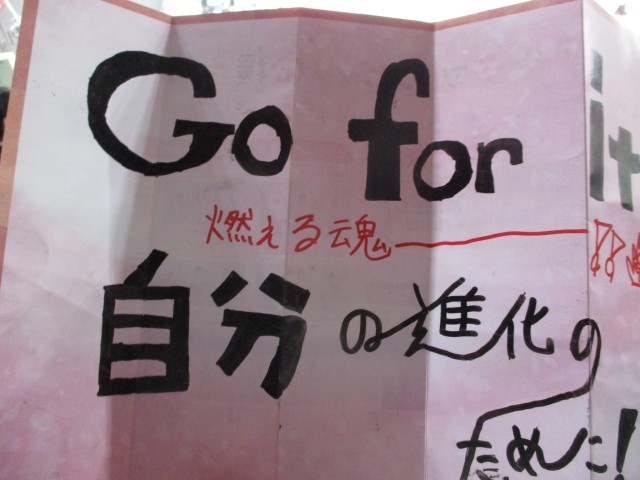 Go for it
燃える魂━━━!!
自分の進化の
ために!